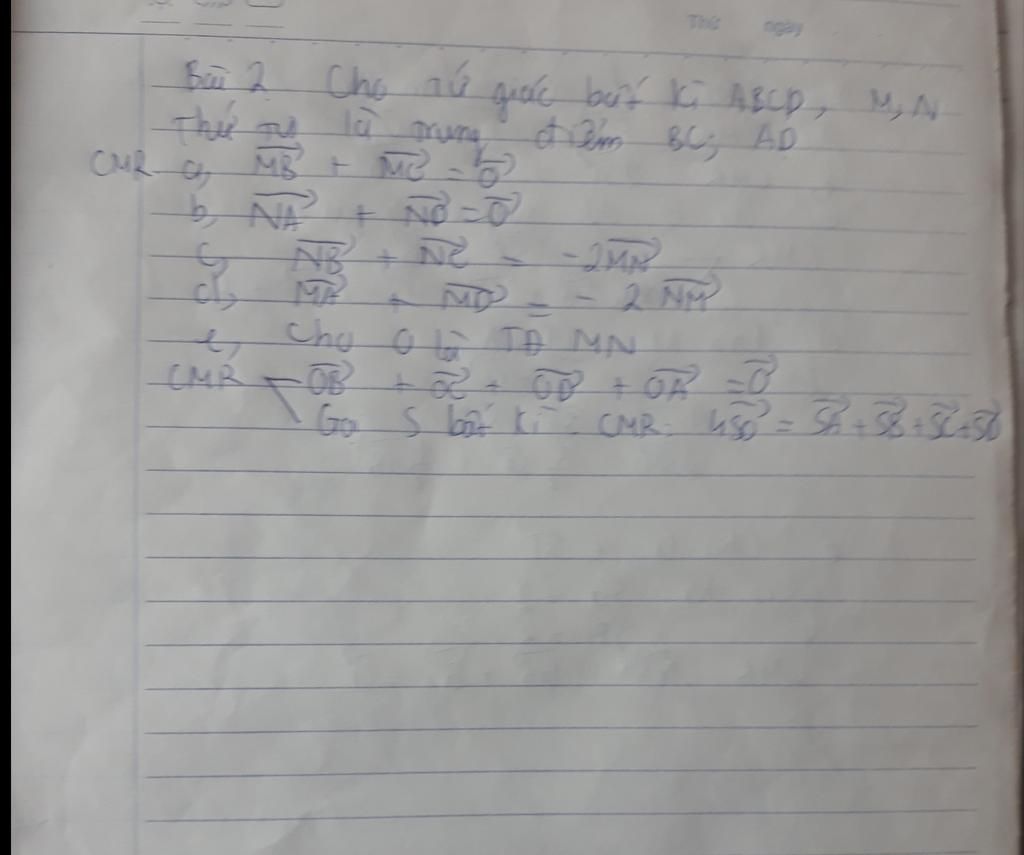 Thứ ngày
Bài 2 Cho tứ giác bất kì ABCD, M, N
Thứ tự là trung điểm BC; AD
CMR a, MB + MC = 0
b, NA + ND = 0
c, NB + NC = -2MN
d, MA + MD = - 2 NM
e, Cho O là TĐ MN
CMR OB + OC + OD + OA = 0
Gọi S bất kì : CMR: 4SO = SA + SB + SC + SD